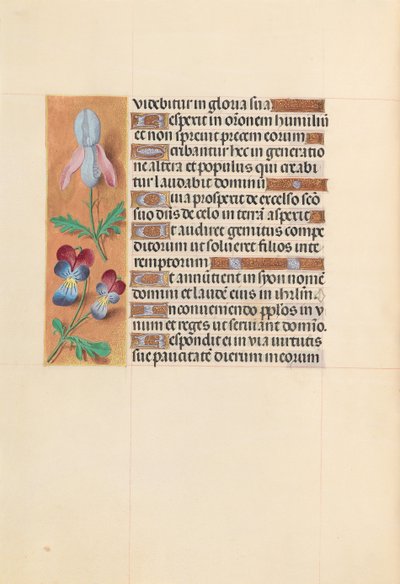 videbitur in gloria sua
Respexit in orōnem humiliū
et non sprevit precem eorum
Scribantur hec in generatio
ne altera et populus qui creabi
tur laudabit dominū
Quia prosperit de excelso scō
suo dn̄s de celo in terrā asperit
Ut audiret gemitus compe
ditorum ut solueret filios inte
remptorum
Ut annūtient in syon nomē
domini et laudē eius in ihrlm̄
In conveniendo pp̄los in v
num et reges ut serviant domīo.
Respondit ei in via virtutis
sue paucitatē dierum meorum